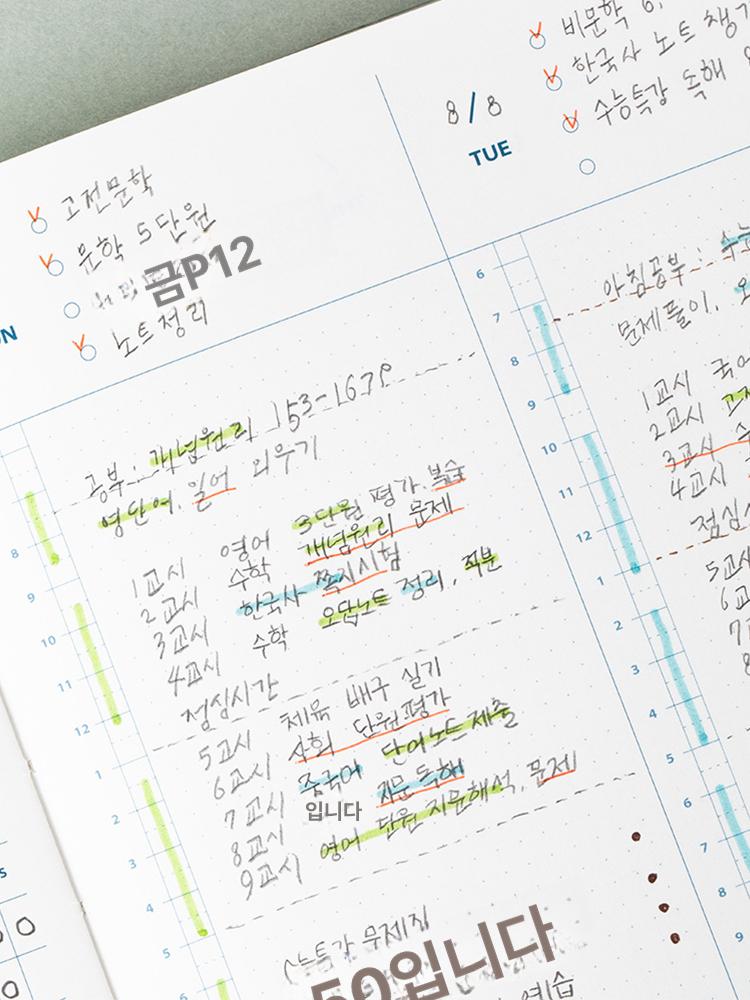 고전문학
문학 5단원
금P12
노트정리
공부: 개념원리 153-167P
영단어, 일어 외우기
1교시 영어 3단원 평가, 복습
2교시 수학 개념원리 문제
3교시 한국사 쪽지시험
4교시 수학 오답노트 정리, 적분
점심시간
5교시 체육 배구 실기
6교시 사회 단원평가
7교시 중국어 단어노트 제출
8교시 입니다 지문 독해
9교시 영어 단원 지문해석, 문제
50입니다
연습
8
9
10
11
12
1
2
3
4
5
6
비문학
한국사 노트
수능특강 독해
8/8
TUE
아침공부:
문제풀이,
1교시 국어
2교시
3교시
4교시
5교시
6
7
8
6
7
8
9
10
11
12
1
2
3
4
5
6
7
8
9